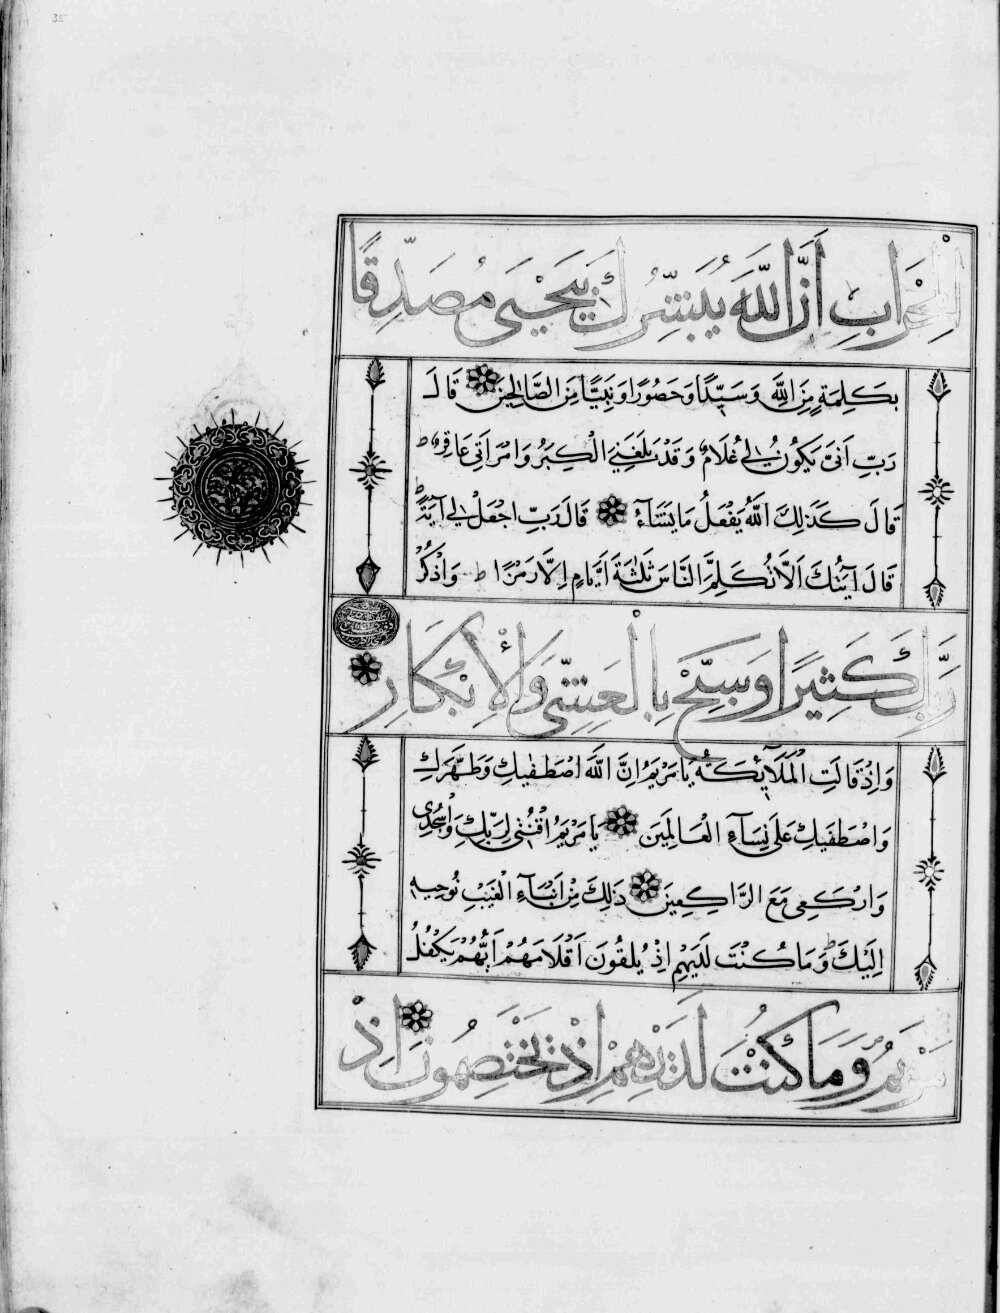 35
الْمِحْرَابِ اَنَّ اللّٰهَ يُبَشِّرُكَ بِيَحْيٰى مُصَدِّقًا
بِكَلِمَةٍ مِنَ اللّٰهِ وَسَيِّدًا وَحَصُورًا وَنَبِيًّا مِنَ الصَّالِحِينَ قَالَ
رَبِّ اَنّٰى يَكُونُ لِي غُلَامٌ وَقَدْ بَلَغَنِيَ الْكِبَرُ وَامْرَاَتِي عَاقِرٌ ط
قَالَ كَذٰلِكَ اللّٰهُ يَفْعَلُ مَا يَشَآءُ قَالَ رَبِّ اجْعَلْ لِي آيَةً ط
قَالَ آيَتُكَ اَلَّا تُكَلِّمَ النَّاسَ ثَلٰثَةَ اَيَّامٍ اِلَّا رَمْزًا ط وَاذْكُرْ
رَبَّكَ كَثِيرًا وَسَبِّحْ بِالْعَشِيِّ وَالْاِبْكَارِ
وَاِذْ قَالَتِ الْمَلَآئِكَةُ يَا مَرْيَمُ اِنَّ اللّٰهَ اصْطَفٰيكِ وَطَهَّرَكِ
وَاصْطَفٰيكِ عَلٰى نِسَآءِ الْعَالَمِينَ يَا مَرْيَمُ اقْنُتِي لِرَبِّكِ وَاسْجُدِي
وَارْكَعِي مَعَ الرَّاكِعِينَ ذٰلِكَ مِنْ اَنْبَآءِ الْغَيْبِ نُوحِيهِ
اِلَيْكَ ط وَمَا كُنْتَ لَدَيْهِمْ اِذْ يُلْقُونَ اَقْلَامَهُمْ اَيُّهُمْ يَكْفُلُ
مَرْيَمَ وَمَا كُنْتَ لَدَيْهِمْ اِذْ يَخْتَصِمُونَ اِذْ